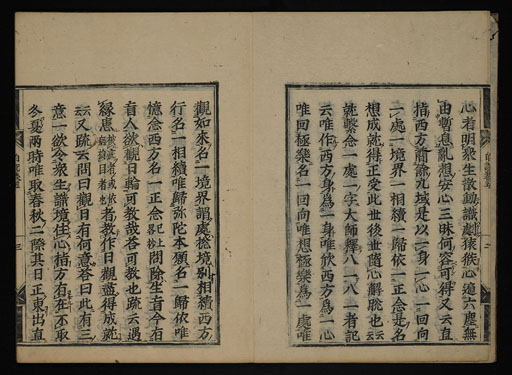 心者明衆生散動識處猿猴心遶六塵無
由暫息亂想安心三昧何容可得又云直
指西方𥳑餘九域是以一身一心一回向
一處一境界一相續一歸依一正念是名
想成就得正受此世後世隨心解脫也云云
就繫念一處一字大師釋八一八一者記
云唯作西方身為一身唯欣西方為一心
唯回極樂名一回向唯想極樂為一處唯
觀如來名一境界謂處捴境別相續西方
行名一相續唯歸弥陀本願名一歸依唯
憶念西方名一正念已上略抄問除生盲今有
盲人欲觀日輪可教哉答可教也疏云遇
緣患者教作日觀盡得成就
云云又疏云問曰觀日有何意荅曰此有三
意一欲令衆生識境住心指方有在不取
冬夏兩時唯取春秋二際其日正東出直